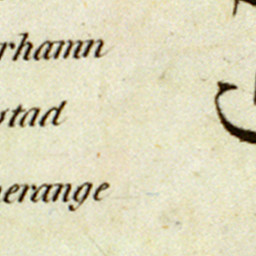 rhamn
stad
erange